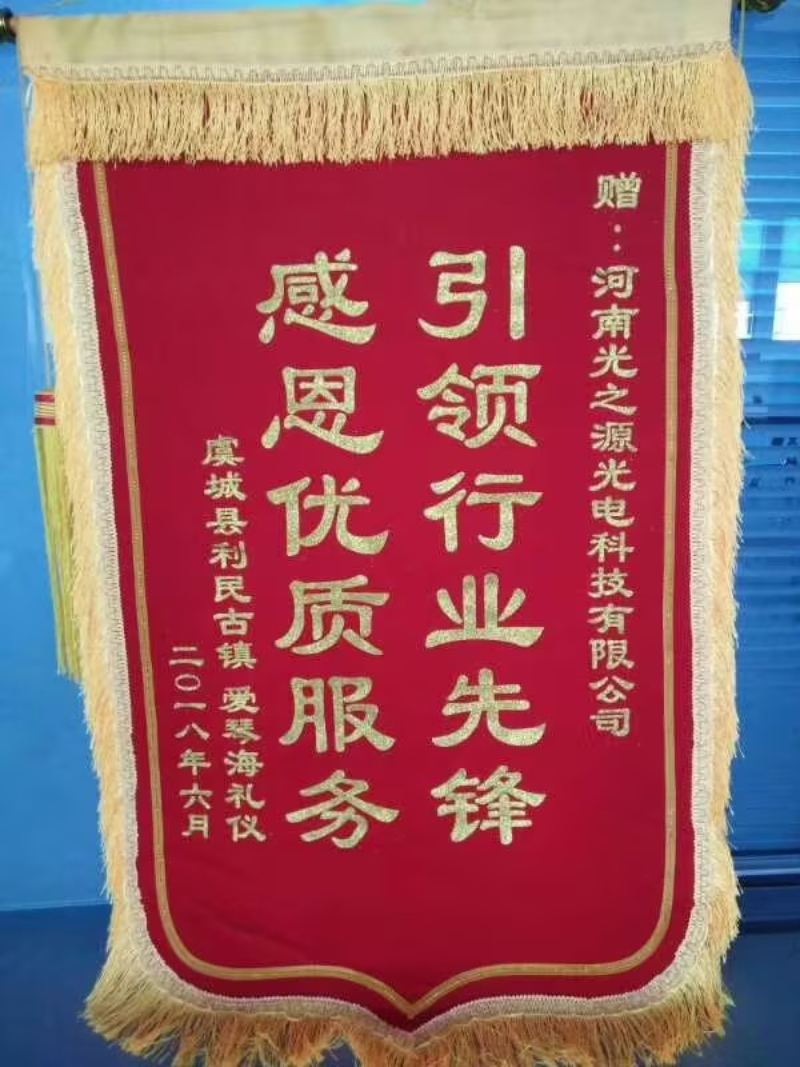 赠：河南光之源光电科技有限公司
引领行业先锋
感恩优质服务
虞城县利民古镇 爱琴海礼仪
二〇一八年六月